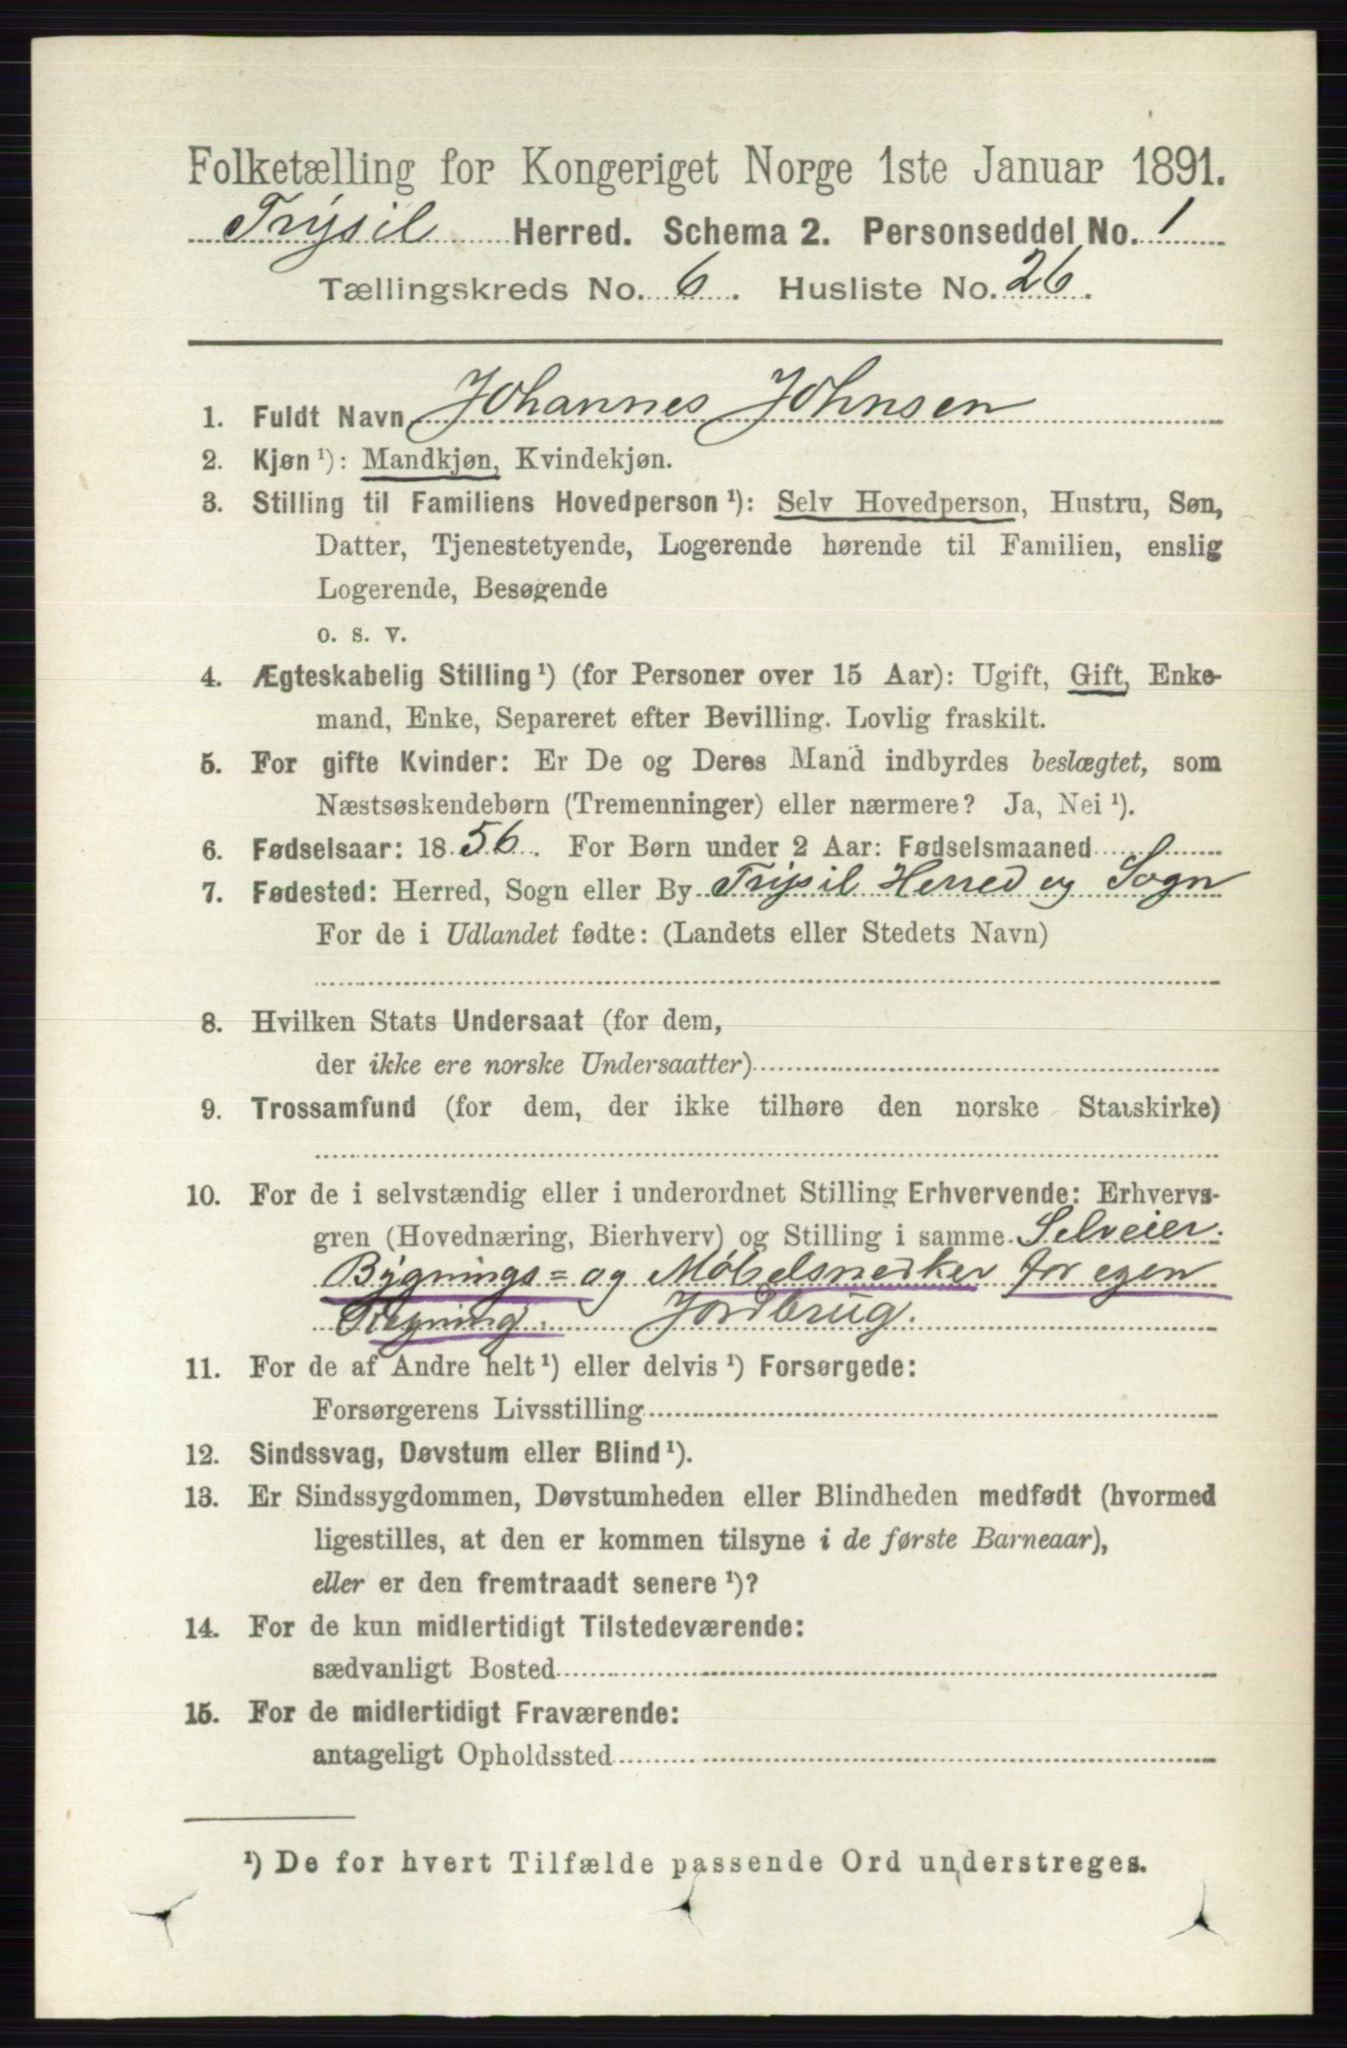 Folketælling for Kongeriget Norge 1ste Januar 1891.
Trysil Herred. Schema 2. Personseddel No. 1
Tællingskreds No. 6. Husliste No. 26.
1. Fuldt Navn Johannes Johnsen
2. Kjøn ¹): Mandkjøn, Kvindekjøn.
3. Stilling til Familiens Hovedperson ¹): Selv Hovedperson, Hustru, Søn,
Datter, Tjenestetyende, Logerende hørende til Familien, enslig
Logerende, Besøgende
o. s. v.
4. Ægteskabelig Stilling ¹) (for Personer over 15 Aar): Ugift, Gift, Enke-
mand, Enke, Separeret efter Bevilling. Lovlig fraskilt.
5. For gifte Kvinder: Er De og Deres Mand indbyrdes beslægtet, som
Næstsøskendebørn (Tremenninger) eller nærmere? Ja, Nei ¹).
6. Fødselsaar: 1856. For Børn under 2 Aar: Fødselsmaaned
7. Fødested: Herred, Sogn eller By Trysil Herred og Sogn
For de i Udlandet fødte: (Landets eller Stedets Navn)
8. Hvilken Stats Undersaat (for dem,
der ikke ere norske Undersaatter)
9. Trossamfund (for dem, der ikke tilhøre den norske Statskirke)
10. For de i selvstændig eller i underordnet Stilling Erhvervende: Erhvervs-
gren (Hovednæring, Bierhverv) og Stilling i samme Selveier.
Bygnings= og Møbelsnedker for egen
Regning. Jordbrug.
11. For de af Andre helt ¹) eller delvis ¹) Forsørgede:
Forsørgerens Livsstilling
12. Sindssvag, Døvstum eller Blind ¹).
13. Er Sindssygdommen, Døvstumheden eller Blindheden medfødt (hvormed
ligestilles, at den er kommen tilsyne i de første Barneaar),
eller er den fremtraadt senere ¹)?
14. For de kun midlertidigt Tilstedeværende:
sædvanligt Bosted
15. For de midlertidigt Fraværende:
antageligt Opholdssted
¹) De for hvert Tilfælde passende Ord understreges.